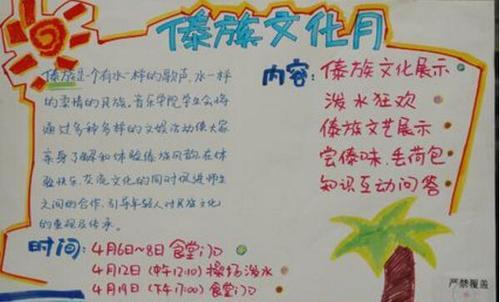 傣族文化月
傣族是一个有水一样的歌声,水一样
的柔情的民族。音乐学院学生会将
通过多种多样的文娱活动使大家
亲身了解和体验傣族风韵,在体
验快乐、交流文化的同时促进师生
之间的合作,引导年轻人对民族文化
的重视及传承。
内容:傣族文化展示
泼水狂欢
傣族文艺展示
尝傣味、丢荷包
知识互动问答
时间:4月6日~8日 食堂门口
4月12日(中午12:10)操场泼水
4月19日(下午17:00)食堂门口
严禁覆盖